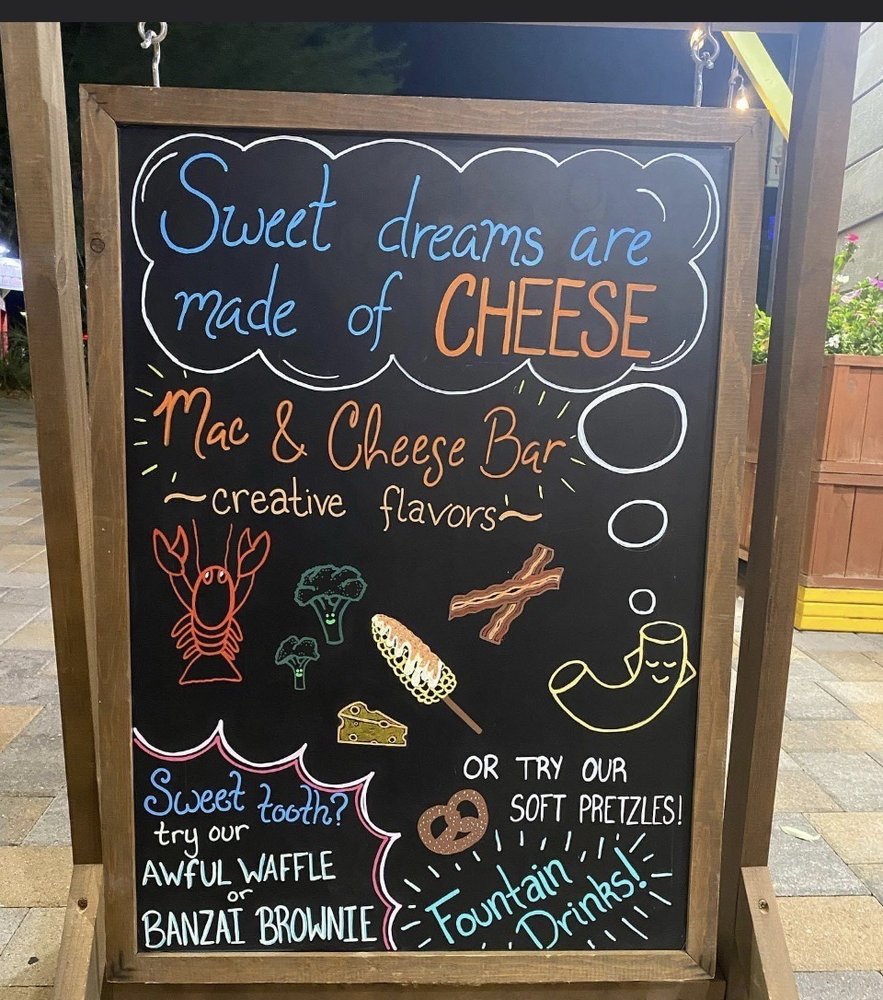 Sweet dreams are
made of CHEESE
Mac & Cheese Bar
~creative flavors~
OR TRY OUR
SOFT PRETZLES!
Sweet tooth?
try our
AWFUL WAFFLE
or
BANZAI BROWNIE
Fountain
Drinks!